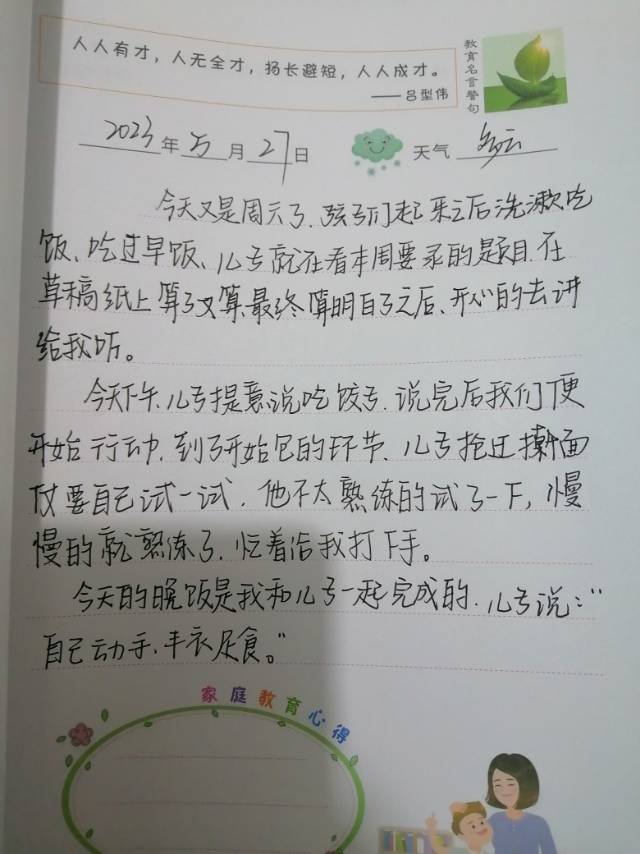 人人有才，人无全才，扬长避短，人人成才。
——吕型伟
教育名言警句
2023年5月27日 天气 多云
今天又是周六了、孩子们起来之后洗漱吃
饭、吃过早饭、儿子就在看本周要录的题目、在
草稿纸上算了又算、最终算明白了之后、开心的去讲
给我听。
今天下午、儿子提意说吃饺子、说完后我们便
开始行动、到了开始包的环节、儿子抢过擀面
杖要自己试一试、他不太熟练的试了一下，慢
慢的就熟练了、忙着给我打下手。
今天的晚饭是我和儿子一起完成的、儿子说："
自己动手、丰衣足食。"
家庭教育心得